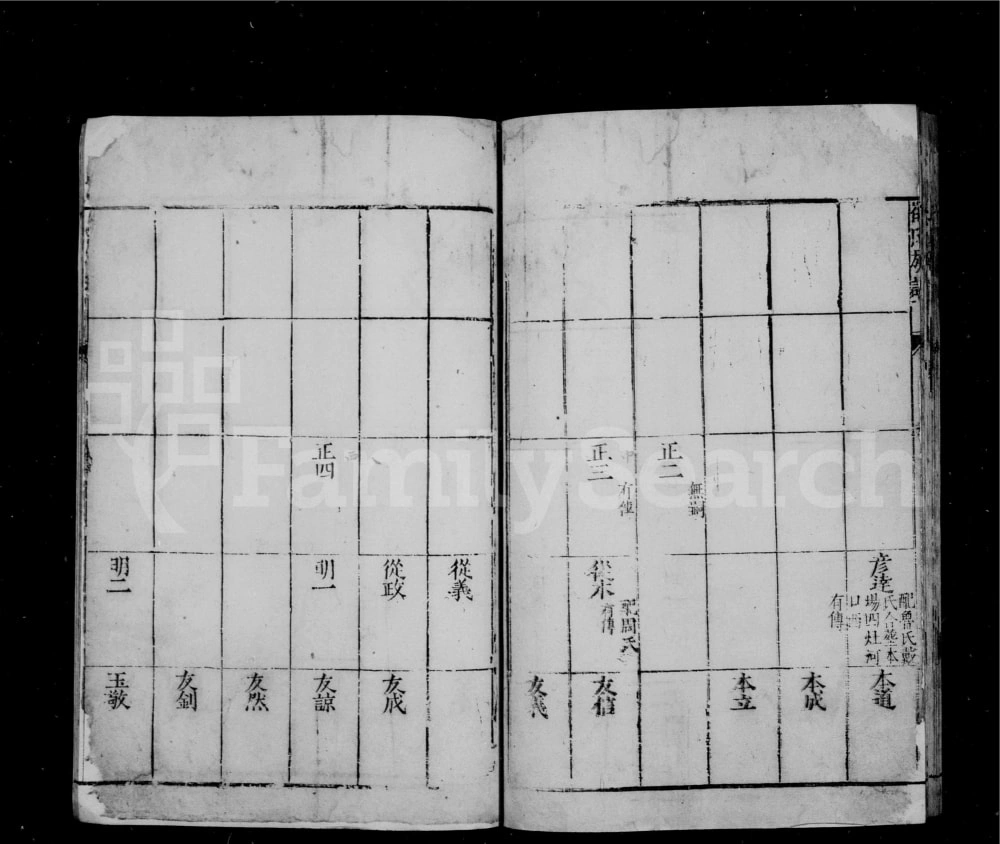 氏族譜
正二
無嗣
正三
有傳
彥達
配魯氏戴
氏合塟本
場四灶河
口西
有傳
從宋
配周氏
有傳
本道
本成
本立
友信
友義
正四
從義
從政
明一
明二
友成
友諒
友然
友釗
玉敬
FamilySearch